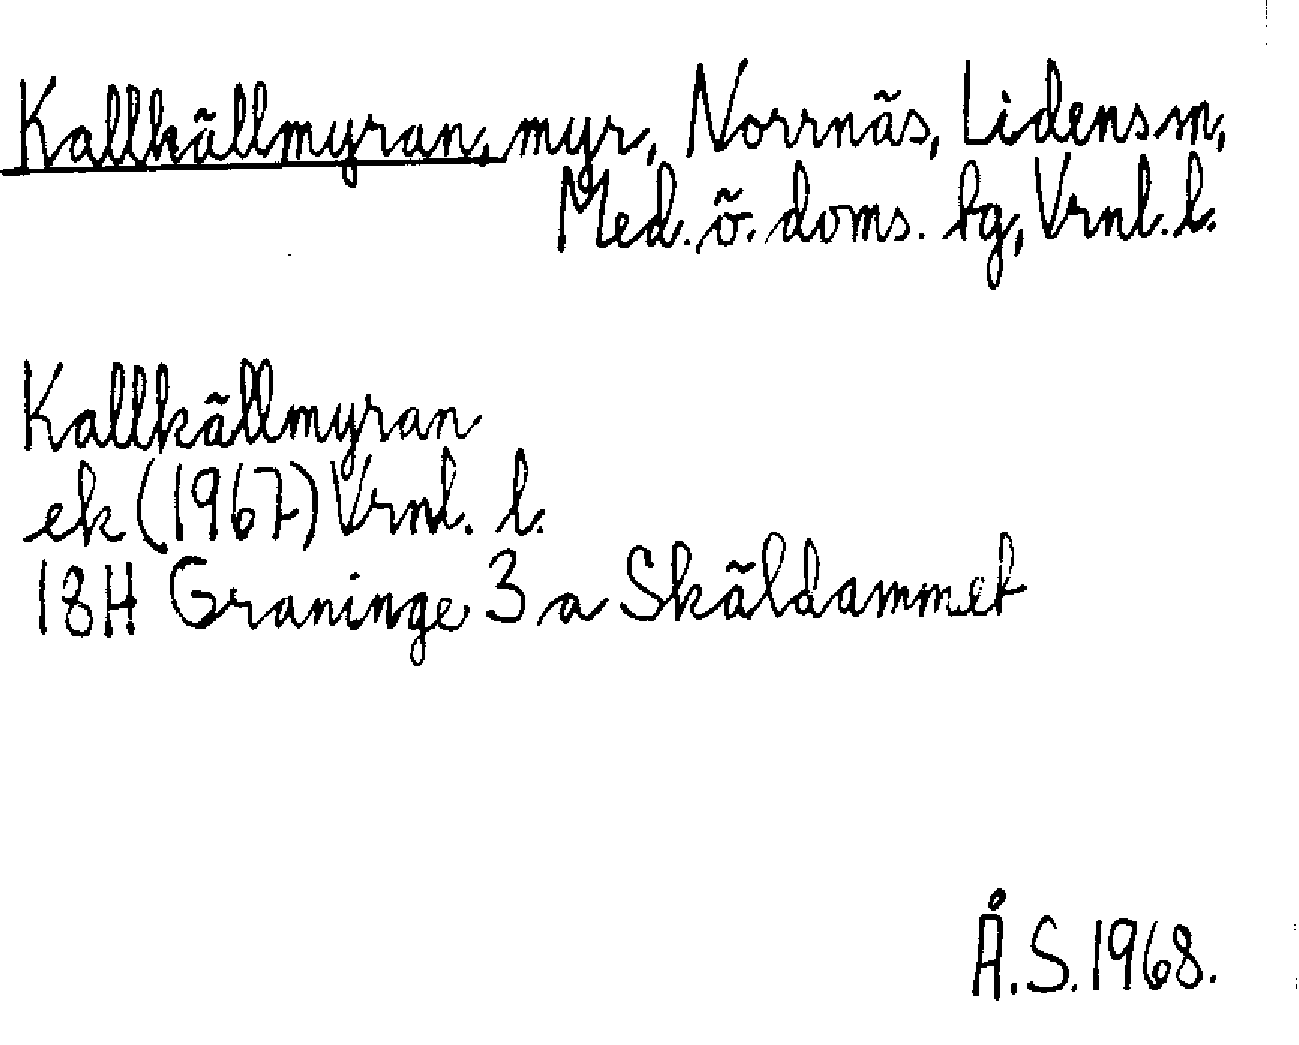 Kallkällmyran, myr, Norrnäs, Lidens sn,
Med. ö. doms. tg, Vrnl. l.
Kallkällmyran
ek (1967) Vrnl. l.
18H Graninge 3 a Skäldammet
Å.S. 1968.